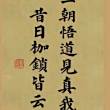 一朝悟道見真我
昔日枷鎖皆云